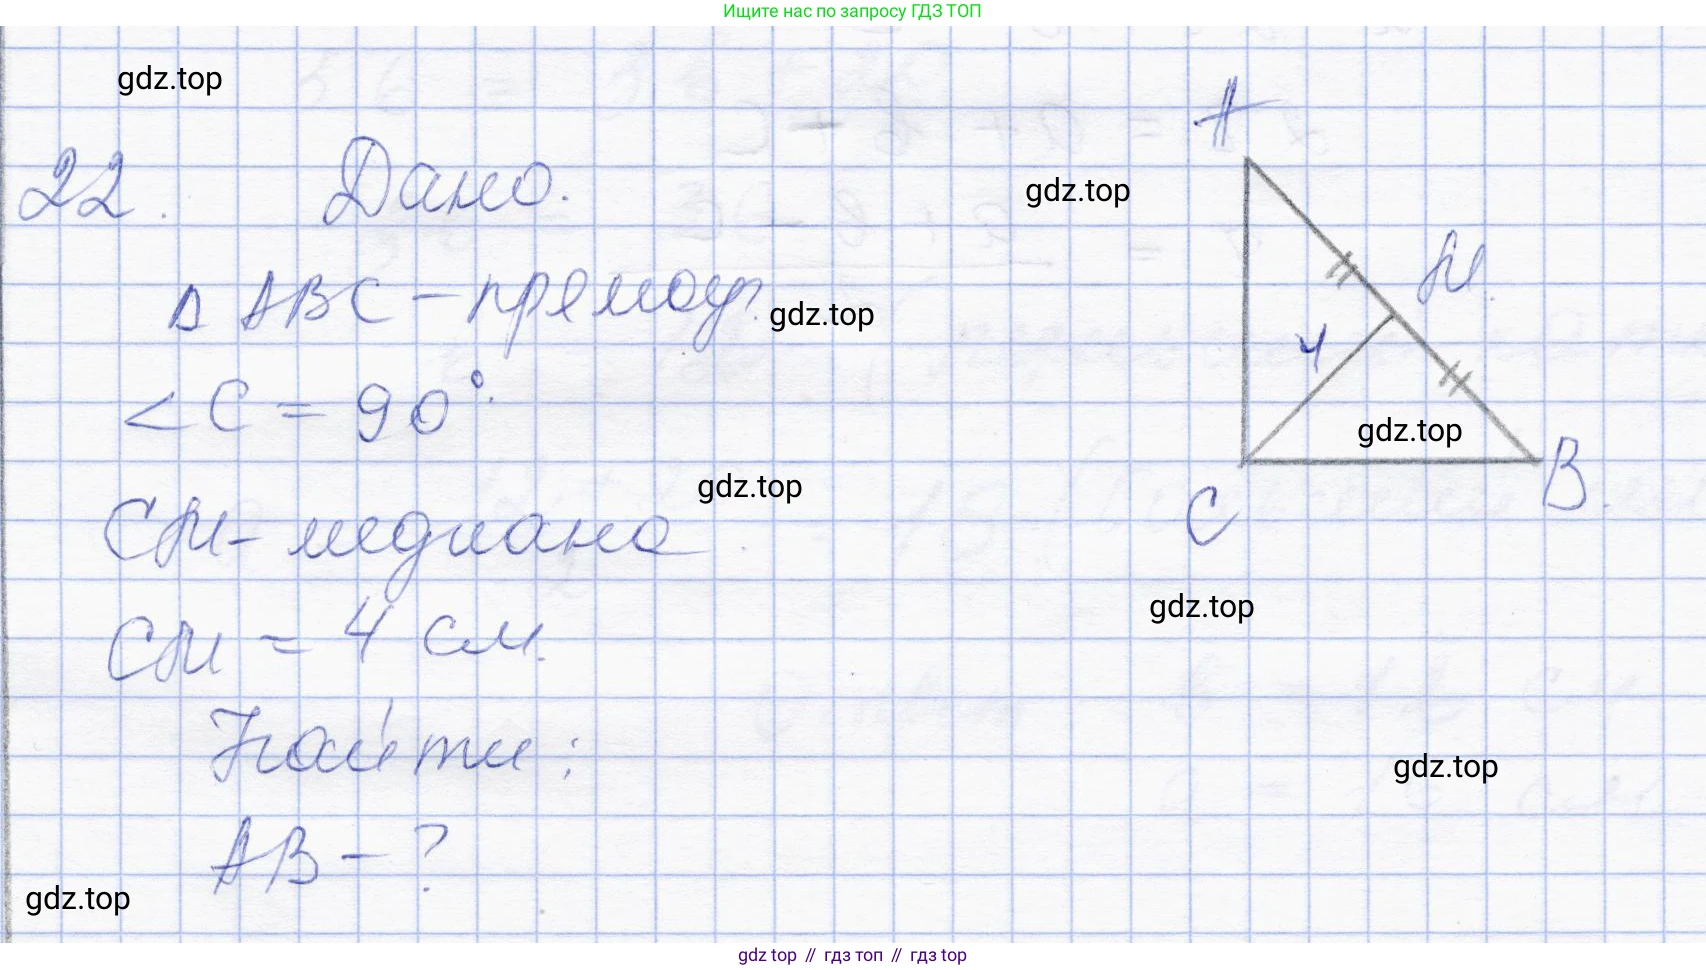 Ищите нас по запросу ГДЗ ТОП
gdz.top
22. Дано.
A
gdz.top
Δ ABC - прямоуг.
gdz.top
M.
4
< C = 90°.
gdz.top
B.
gdz.top
C
CM - медиана
gdz.top
CM = 4 см.
Найти:
gdz.top
AB - ?
gdz.top
gdz top // гдз топ // gdz top